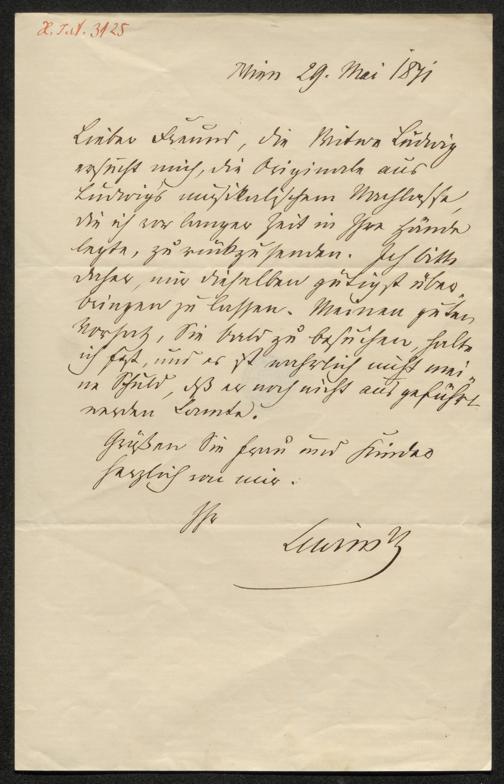 H. I. N. 3125
Wien 29. Mai 1871
Lieber Freund, die Witwe Ludwig
ersucht mich, die Originale aus
Ludwigs musikalischem Nachlasse,
die ich vor langer Zeit in Ihre Hände
legte, zurückzusenden. Ich bitte
daher, mir dieselben gütigst über
bringen zu lassen. Meinen guten
Vorsatz, Sie bald zu besuchen, halte
ich fest, und es ist wahrlich nicht mei
ne Schuld, daß er noch nicht ausgeführt
werden konnte.
Grüßen Sie Frau und Kinder
herzlich von mir.
Ihr
Lewinsky